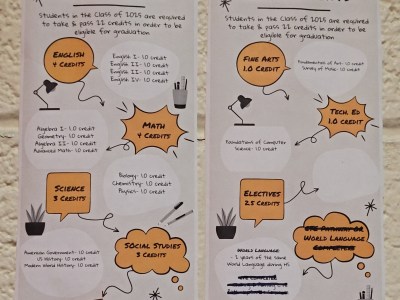 Students in the Class of 2025 are required
to take & pass 22 credits in order to be
eligible for graduation
English
4 Credits
English I- 1.0 credit
English II- 1.0 credit
English III- 1.0 credit
English IV- 1.0 credit
Math
4 Credits
Algebra I- 1.0 credit
Geometry- 1.0 credit
Algebra II- 1.0 credit
Advanced Math- 1.0 credit
Science
3 Credits
Biology- 1.0 credit
Chemistry- 1.0 credit
Physics- 1.0 credit
Social Studies
3 Credits
American Government- 1.0 credit
US History- 1.0 credit
Modern World History- 1.0 credit
Students in the Class of 2025 are required
to take & pass 22 credits in order to be
eligible for graduation
Fine Arts
1.0 Credit
Fundamentals of Art- 1.0 credit
Survey of Music- 1.0 credit
Tech. Ed
1.0 Credit
Foundations of Computer
Science- 1.0 credit
Electives
2.5 Credits
CTE Pathway OR
World Language
Completer
World Language
- 2 years of the same
World Language during HS